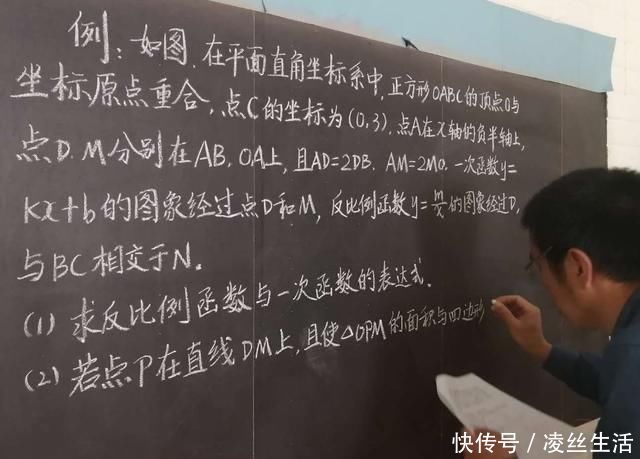 例：如图,在平面直角坐标系中,正方形OABC的顶点O与
坐标原点重合,点C的坐标为(0,3),点A在x轴的负半轴上,
点D.M分别在AB.OA上,且AD=2DB.AM=2MO.一次函数y=
kx+b的图象经过点D和M,反比例函数y=m/x的图象经过D,
与BC相交于N.
(1)求反比例函数与一次函数的表达式.
(2)若点P在直线DM上,且使△OPM的面积与四边形
快传号/凌丝生活